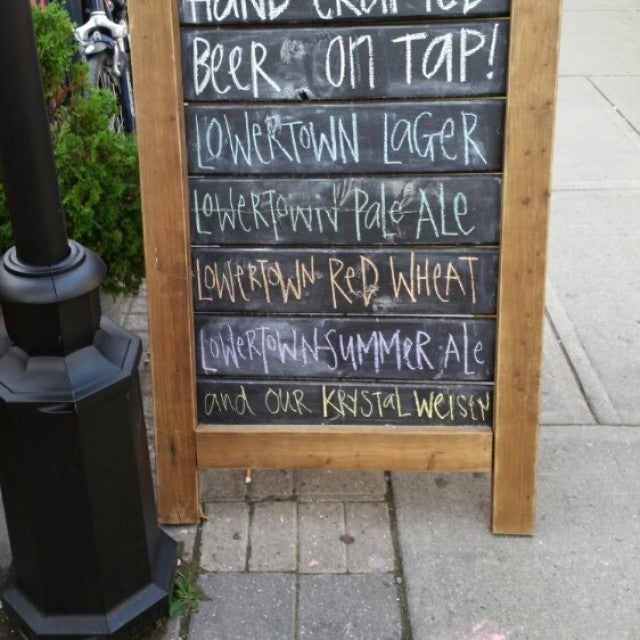 HAND CRAFTED
BEER ON TAP!
LOWERTOWN LAGER
LOWERTOWN PALE ALE
LOWERTOWN RED WHEAT
LOWERTOWN SUMMER ALE
and OUR KRYSTAL WEISEN